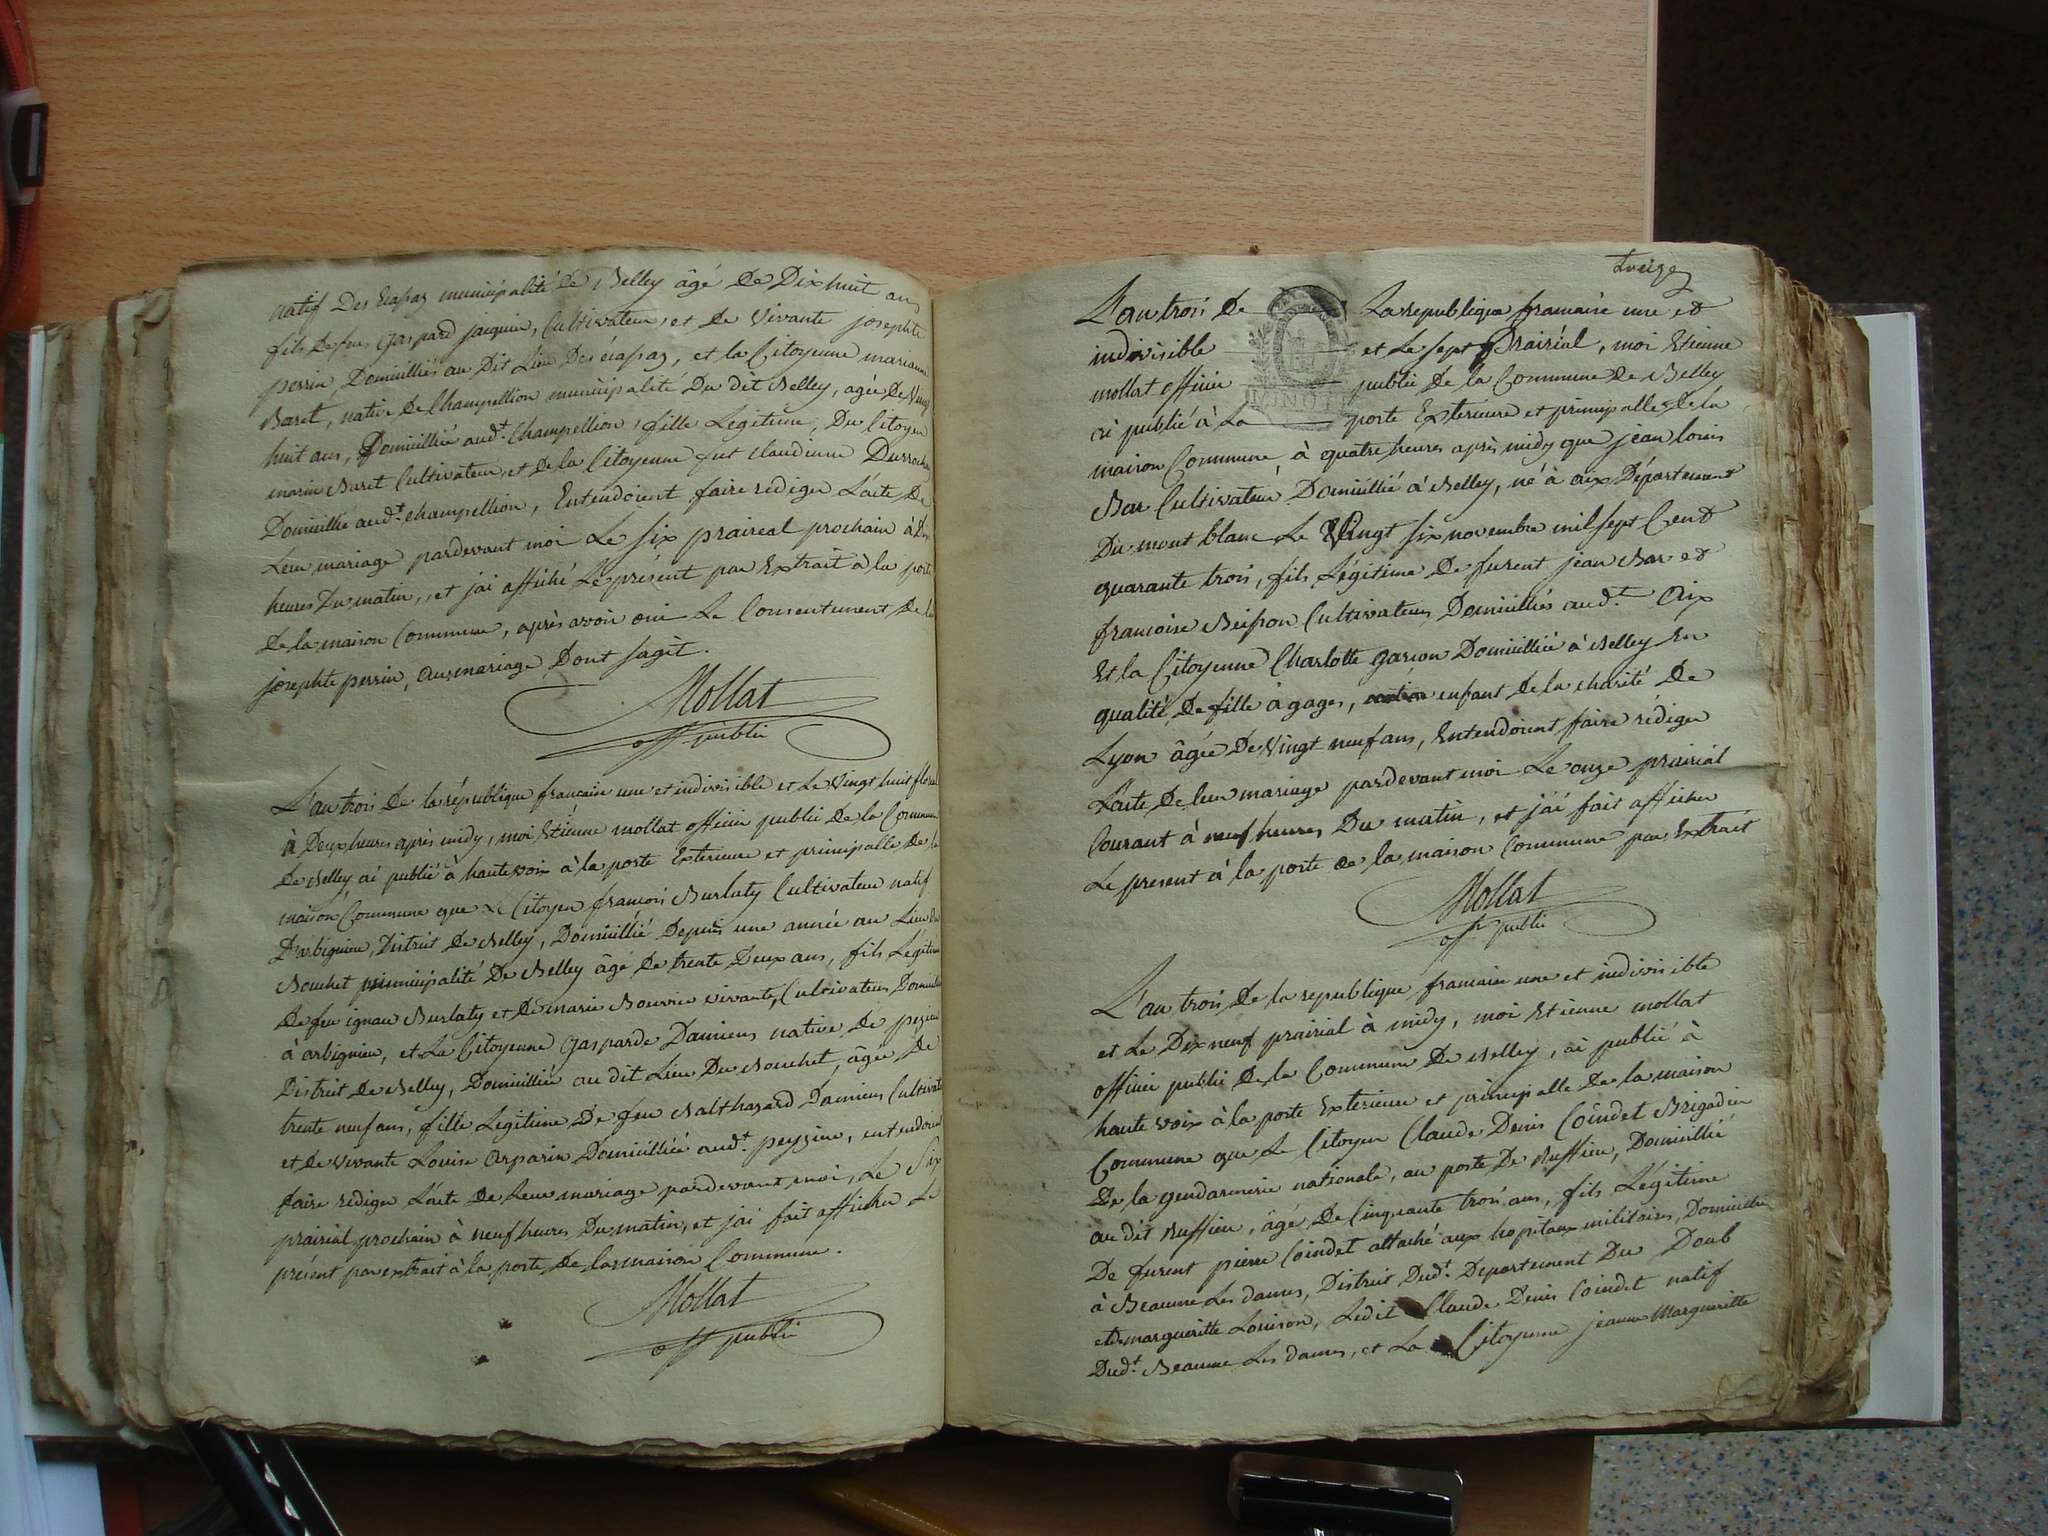 natif Des Ecapaz municipalité de Belley âgé de Dix huit ans
fils de feu gaspard jaiquin, Cultivateur, et De Vivante josephte
perrin, Domiciliiés au Dit Lieu Des écapaz, et la Citoyenne marianne
Baret, native De Champellion municipalité Du dit Belley, agée De Vingt
huit ans, Domiciliiée aud.t Champellion, fille Légitime, Du Citoyen
marin Buret Cultivateur, et De la Citoyenne fut claudinne
Domiciliié aud.t champellion, Entendoient faire rédiger L'acte De
Leur mariage pardevant moi Le six praireal prochain à
heures Du matin, et jai affiché Le présent par Extrait à la porte
De la maison Commune, après avoir oui Le Consentement De la
josephte perrin, au mariage Dont sagit.
Mollat
off. public
L'an trois De la république francaise une et indivisible et Le Vingt huit floreal
à Deux heures après midy, moi Etienne mollat officier public De la Commune
De Belley ai publié à haute voix à la porte Exterieure et principalle De la
maison Commune que Le Citoyen francois Burlaty Cultivateur natif
D'arbignieu, District De Belley, Domiciliié Depuis une année au Lieu Du
Bouchet municipalité De Belley âgé De trente Deux ans, fils Légitime
De feu ignace Burlaty et De marie Bouvier vivante, Cultivateurs Domiciliiés
à arbignieu, et La Citoyenne gasparde Damiens native De pezieu
District De Belley, Domiciliiée au dit Lieu Du Bouchet, âgée De
trente neuf ans, fille Légitime De feu Balthazard Damiens Cultivateur
et De vivante Louise Arparin Domiciliiée aud.t peyzieu, entendoient
faire rédiger L'acte De Leur mariage pardevant moi, Le Six
prairial prochain à neuf heures Du matin, et jai fait afficher Le
présent par extrait à la porte De la maison Commune.
Mollat
off public
treize
L'an trois De La république francaise une et
indivisible et Le sept Prairial, moi Etienne
mollat officier public De la Commune De Belley
ai publié à La porte Exterieure et principalle De la
MINUTE
maison Commune, à quatre heures après midy que jean louis
Bar Cultivateur Domiciliié à Belley, né à aix Département
Du mont blanc Le Vingt six novembre mil sept Cent
quarante trois, fils Légitime De furent jean Bar et
francoise Beisson Cultivateurs, Domiciliiés aud.t Aix
Et la Citoyenne Charlotte garcon Domiciliiée à Belley En
qualité De fille à gages, enfant De la charité De
Lyon âgée De Vingt neuf ans, Entendoient faire rédiger
L'acte De leur mariage pardevant moi Le onze prairial
Courant à neuf heures Du matin, et j'ai fait afficher
Le present à la porte de la maison Commune par Extrait
Mollat
off. public
L'an trois De la republique francaise une et indivisible
et Le Dix neuf prairial à midy, moi Etienne mollat
officier public De la Commune De Belley, ai publié à
haute voix à la porte Exterieure et principalle De la maison
Commune que Le Citoyen Claude Denis Coindet Brigadier
De la gendarmerie nationale, au poste De Ruffieu, Domiciliié
au dit Ruffieu, âgé De Cinquante trois ans, fils Légitime
De furent pierre Coindet attaché aux hopitaux militaires, Domiciliié
à Beaume Les dames, District Dud.t Departement Du Doub
et De margueritte Louison, Ledit Claude Denis Coindet natif
Dud.t Beaume Les dames, et La Citoyenne jeanne Margueritte